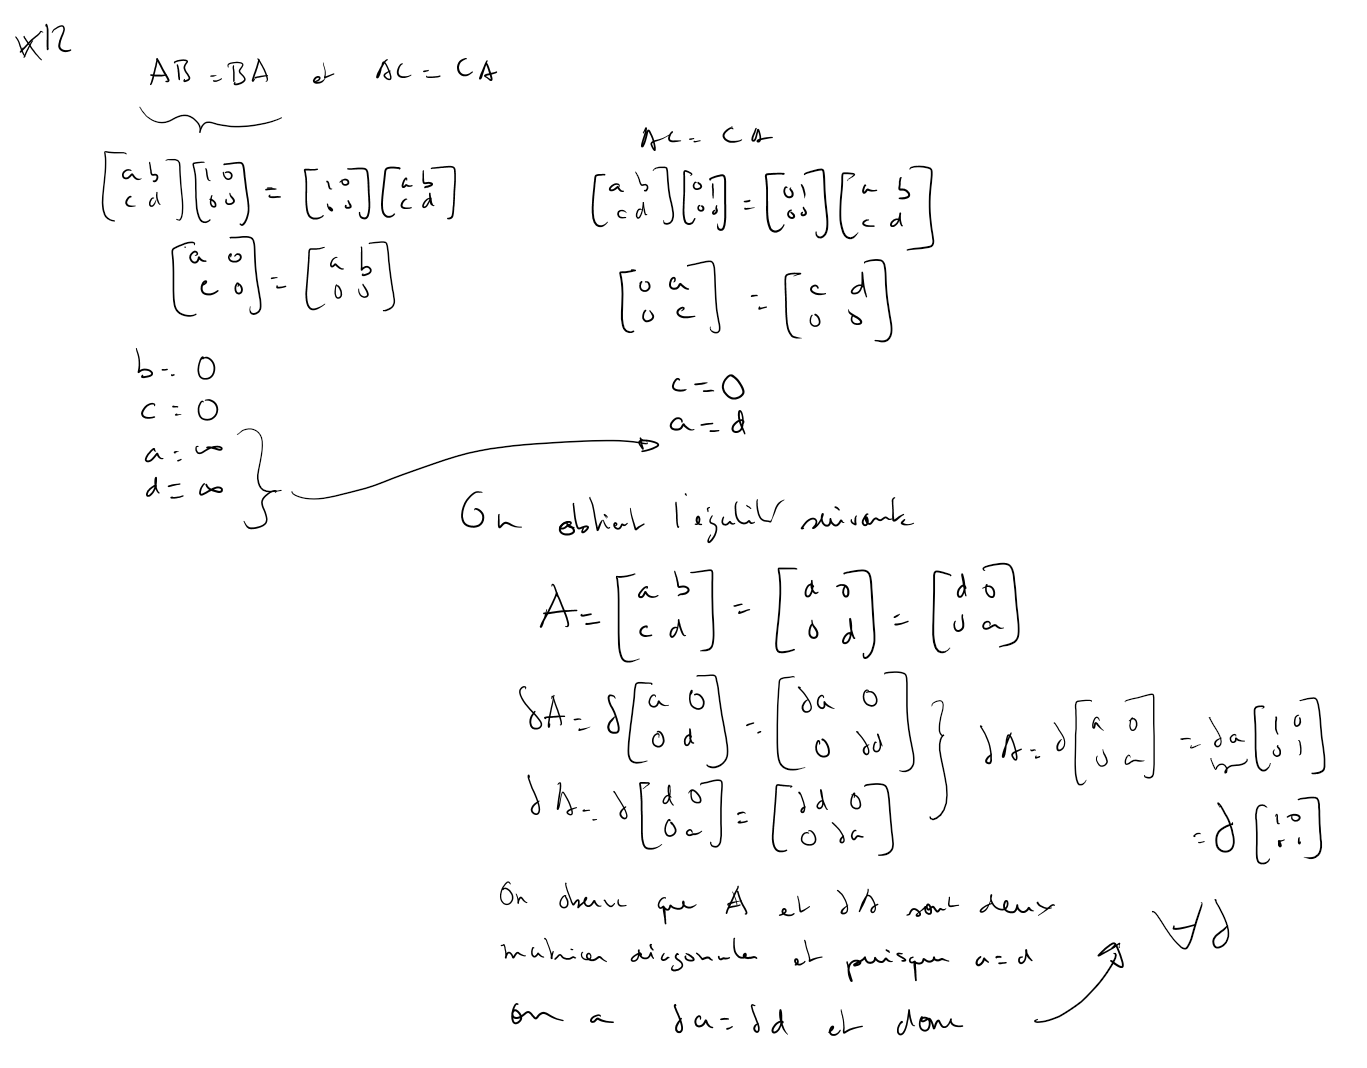 *12
AB = BA et AC = CA
[a b; c d] [1 0; 0 0] = [1 0; 0 0] [a b; c d]
[a 0; c 0] = [a b; 0 0]
b = 0
c = 0
a = ∞
d = ∞
AC = CA
[a b; c d] [0 1; 0 0] = [0 1; 0 0] [a b; c d]
[0 a; 0 c] = [c d; 0 0]
c = 0
a = d
On obtient l'égalité suivante
A = [a b; c d] = [d 0; 0 d] = [d 0; 0 a]
δA = δ [a 0; 0 d] = [δa 0; 0 δd]
δA = δ [d 0; 0 a] = [δd 0; 0 δa]
δA = δ [a 0; 0 a] = δa [1 0; 0 1]
= δ [1 0; 0 1]
On observe que A et δA sont deux
matrices diagonales et puisque a = d
on a δa = δd et donc
∀δ